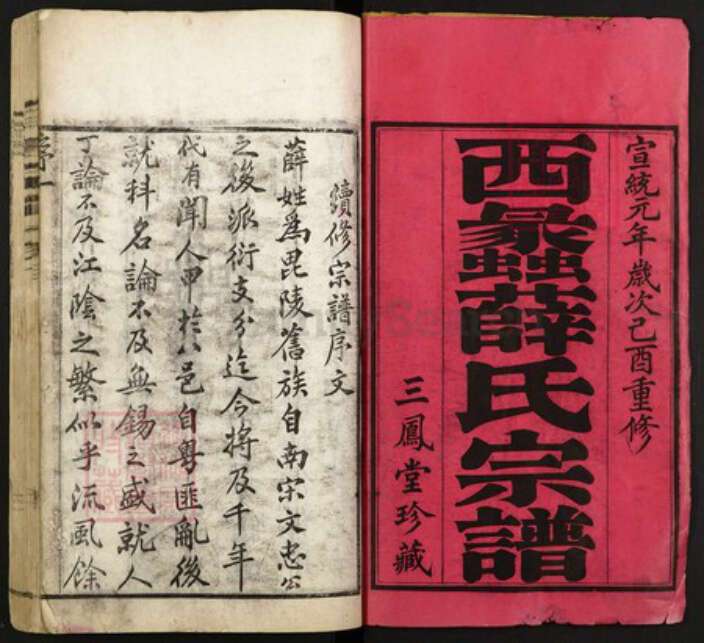 宣統元年歲次己酉重修
西蠡薛氏宗譜
三鳳堂珍藏
續修宗譜序文
薛姓爲毘陵舊族自南宋文忠公
之後派衍支分迄今將及千年
代有聞人甲於八邑自粵匪亂後
就科名論不及無錫之盛就人
丁論不及江陰之繁似乎流風餘
序一